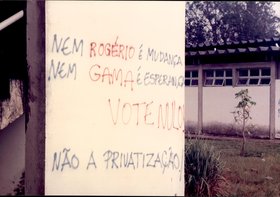 NEM ROGÉRIO É MUDANÇA
NEM GAMA É ESPERANÇ
VOTE NULO
NÃO A PRIVATIZAÇÃO